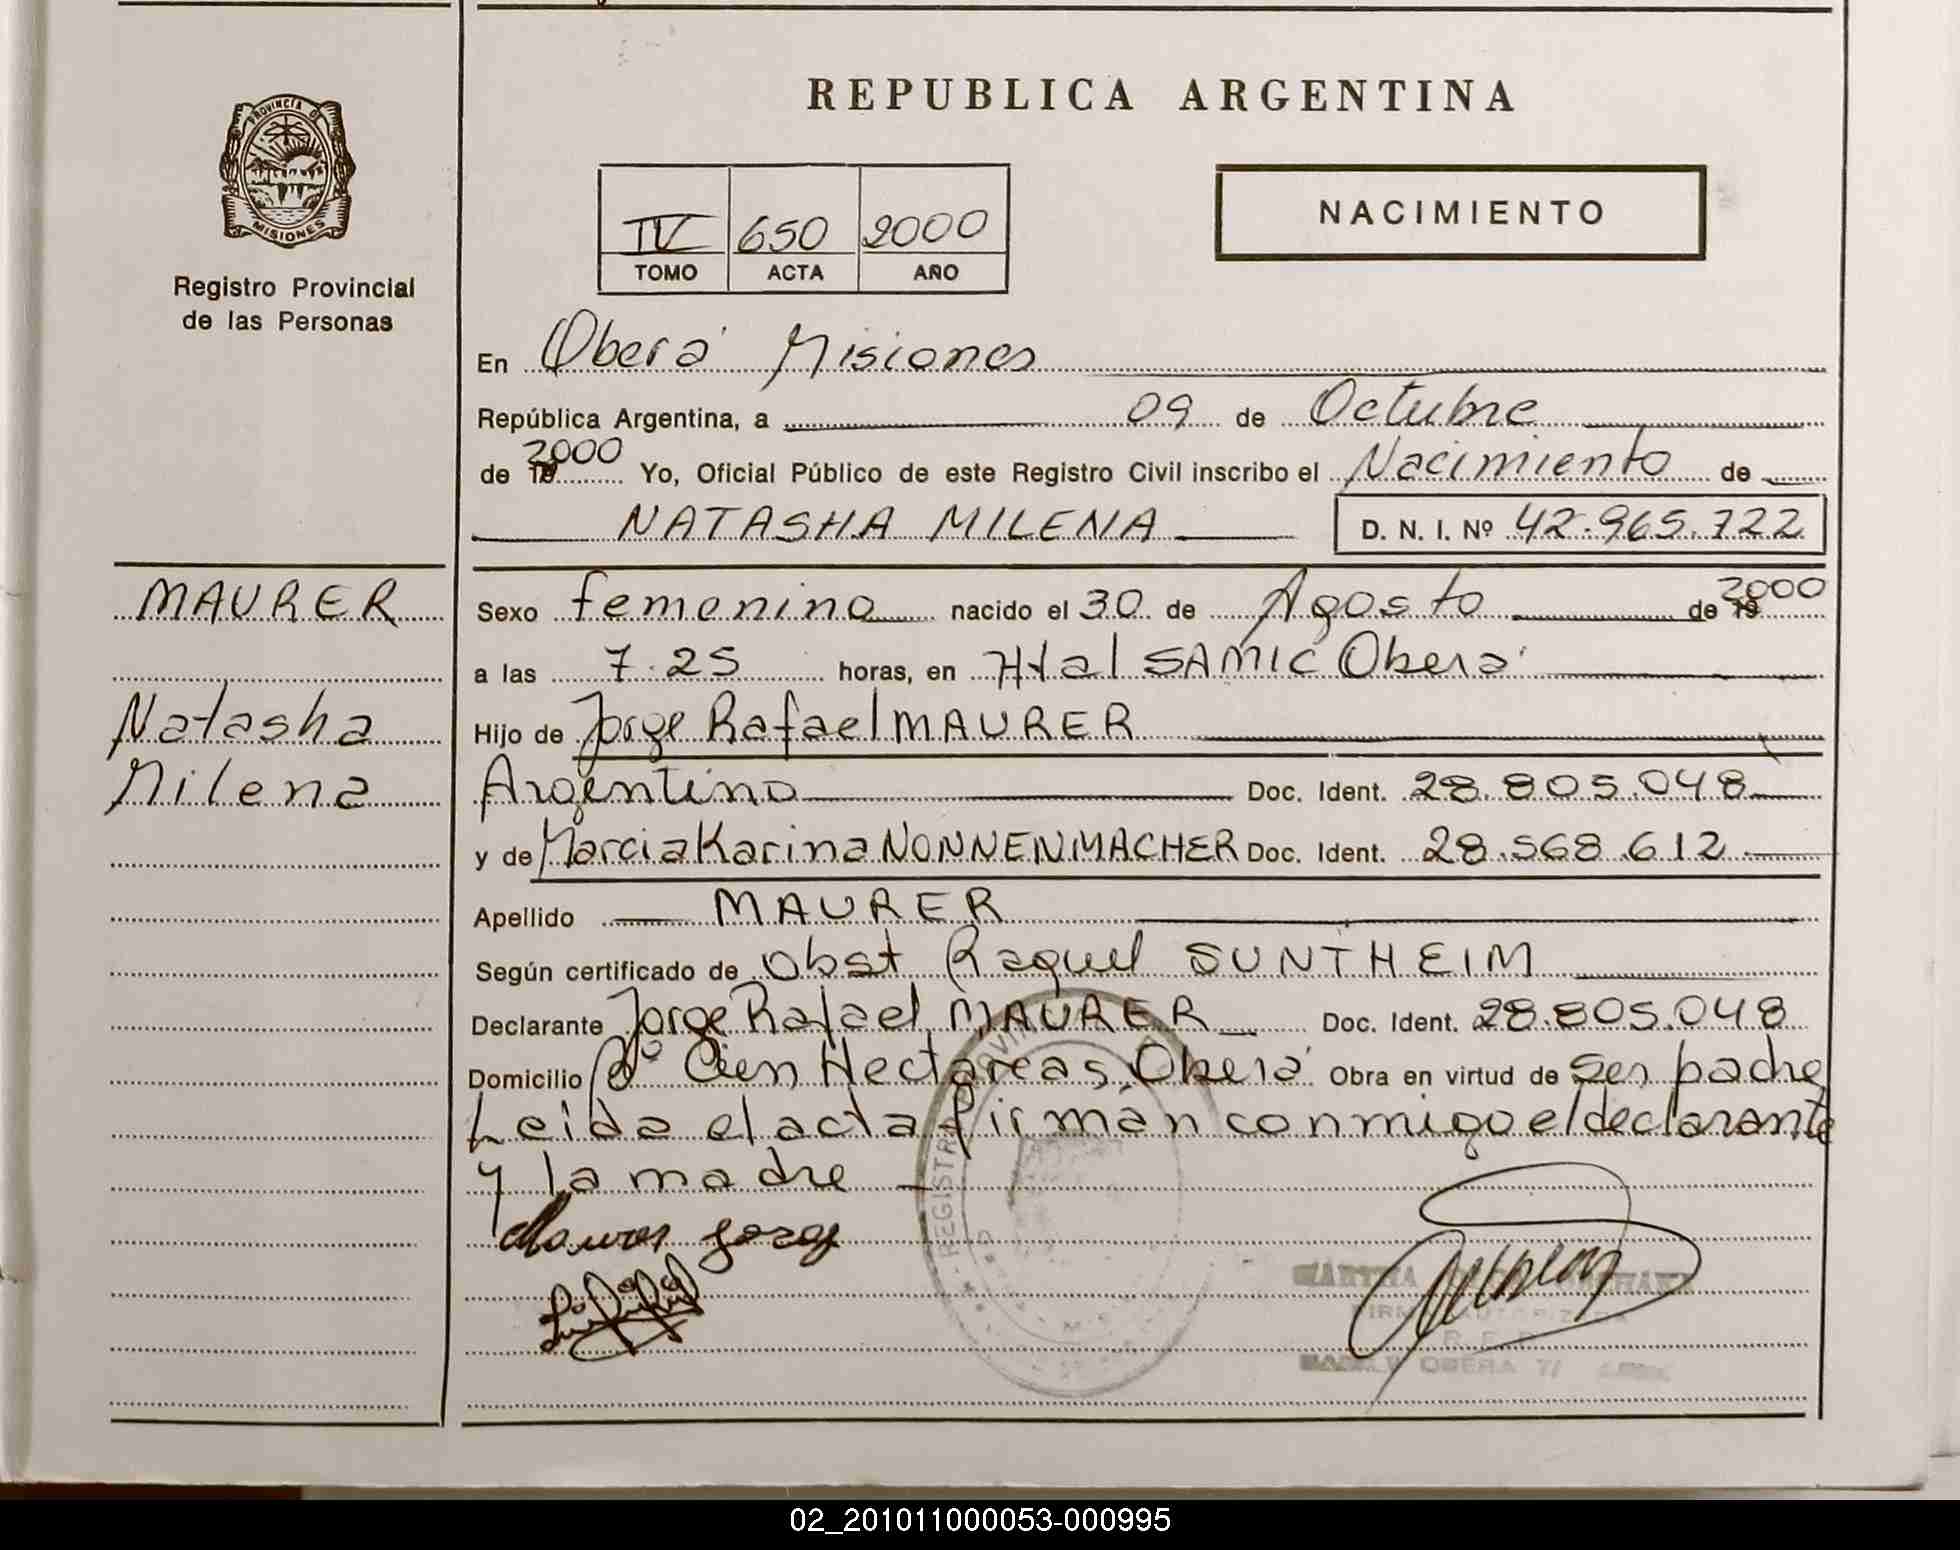 REPUBLICA ARGENTINA
PROVINCIA DE
MISIONES
Registro Provincial
de las Personas
IV 650 2000
TOMO ACTA AÑO
NACIMIENTO
En Oberá Misiones
República Argentina, a 09 de Octubre
de 2000 Yo, Oficial Público de este Registro Civil inscribo el Nacimiento de
NATASHA MILENA D. N. I. Nº 42.965.722
MAURER
Natasha
Milena
Sexo femenino nacido el 30 de Agosto de 2000
a las 7.25 horas, en Htal SAMIC Oberá
Hijo de Jorge Rafael MAURER
Argentino Doc. Ident. 28.805.048
y de Marcia Karina NONNENMACHER Doc. Ident. 28.568.612
Apellido MAURER
Según certificado de Obst Raquel SUNTHEIM
Declarante Jorge Rafael MAURER Doc. Ident. 28.805.048
Domicilio Bº Cien Hectareas, Oberá Obra en virtud de ser padre
Leida el acta firman conmigo el declarante
y la madre
02_201011000053-000995